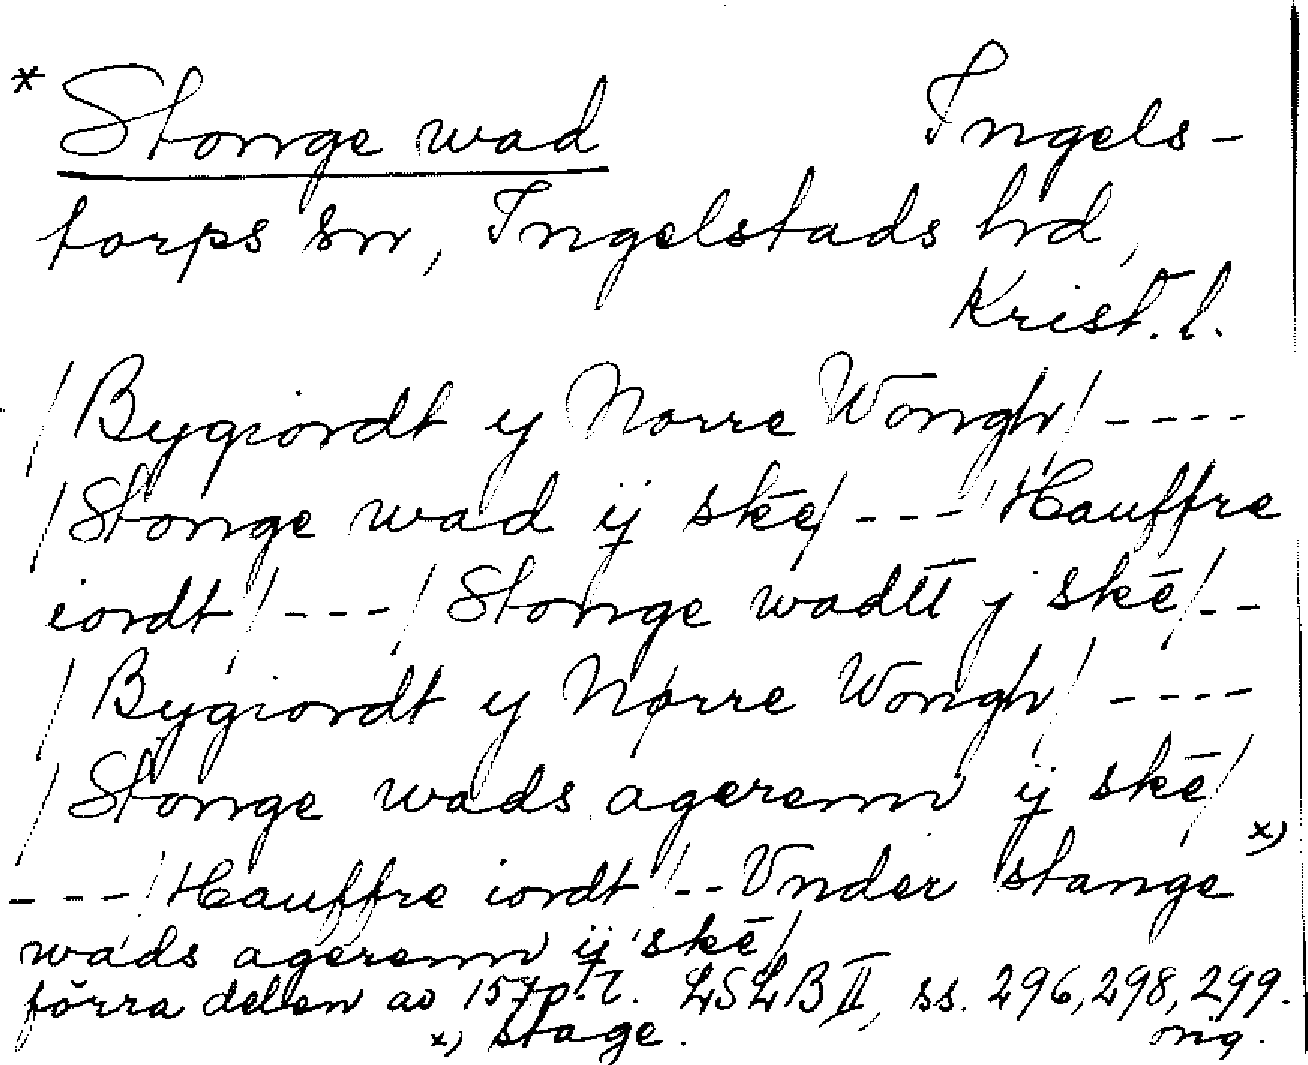 * Stonge wad Ingels-
torps sn, Ingelstads hd,
Krist. l.
/Bygiordt y Norre Wongh/ ----
/Stonge wad ij skē/ --- /Hauffre
iordt/ --- /Stonge wadtt j skē/--
/Bygiordt y Nørre Wongh/ ----
/Stonge wads agerenn ij skē/
---/Hauffre iordt/--Vnder stange x)
wads agerenn ij skē/
förra delen av 157p. t. LSLB II, ss. 296, 298, 299.
x) stage. orig.